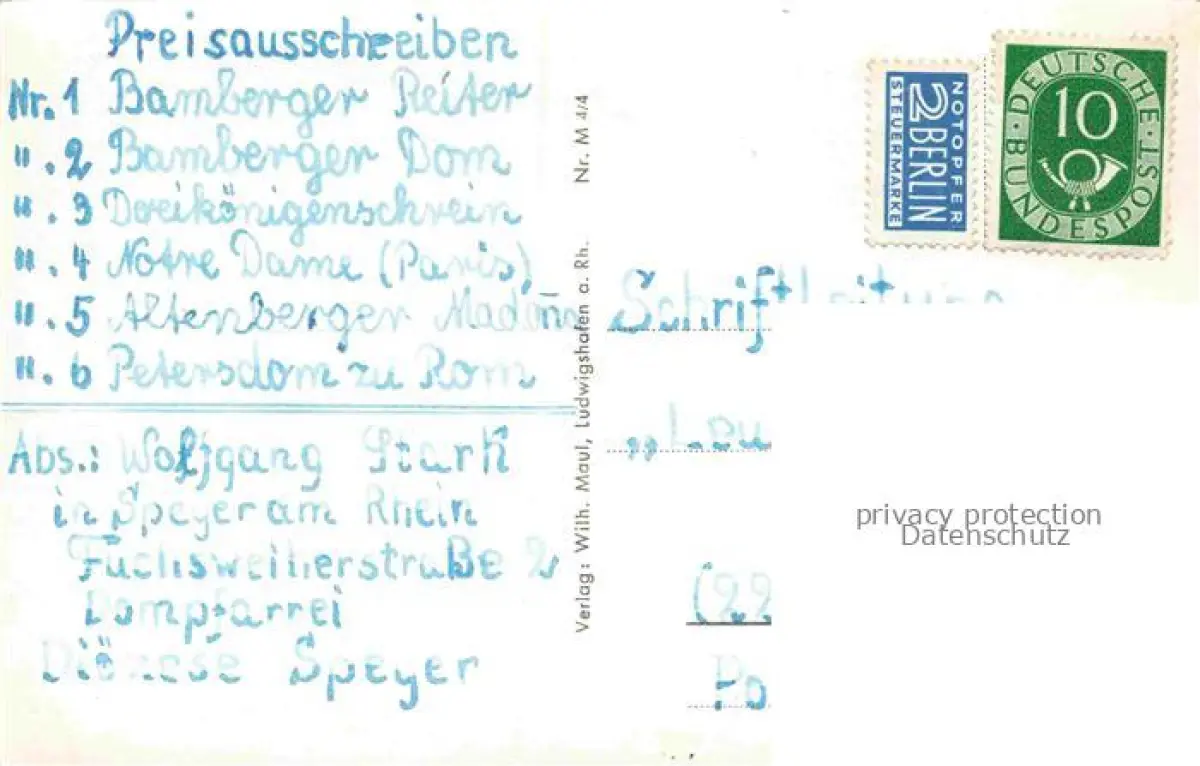 Preisausschreiben
Nr. 1 Bamberger Reiter
". 2 Bamberger Dom
". 3 Dreikönigenschrein
". 4 Notre Dame (Paris)
". 5 Altenberger Madonna
". 6 Petersdom zu Rom
Abs.: Wolfgang Stark
in Speyer am Rhein
Fuchsweiherstraße 2
Dompfarrei
Diözese Speyer
Verlag: Wilh. Maul, Ludwigshafen a. Rh. Nr. M 4/4
NOTOPFER
2 BERLIN
STEUERMARKE
DEUTSCHE BUNDESPOST
10
Schriftleitung
(22
Po
privacy protection
Datenschutz